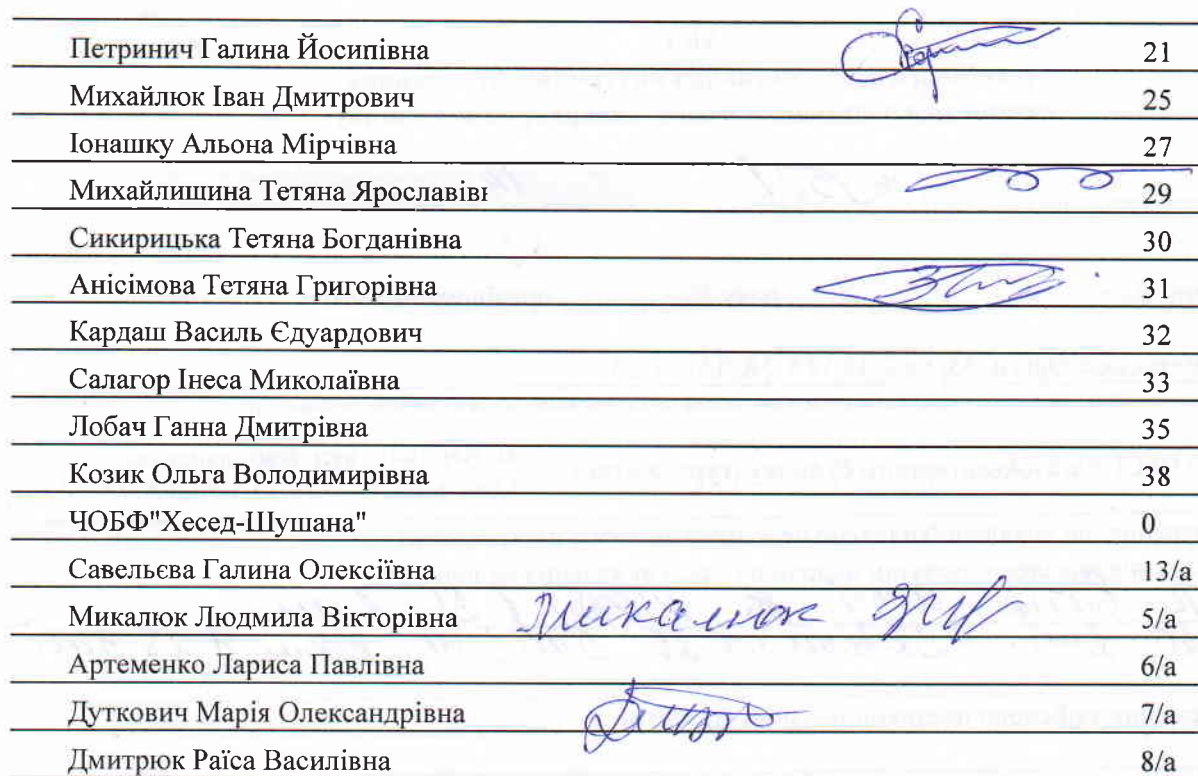 Петринич Галина Йосипівна 21
Михайлюк Іван Дмитрович 25
Іонашку Альона Мірчівна 27
Михайлишина Тетяна Ярославівн 29
Сикирицька Тетяна Богданівна 30
Анісімова Тетяна Григорівна 31
Кардаш Василь Єдуардович 32
Салагор Інеса Миколаївна 33
Лобач Ганна Дмитрівна 35
Козик Ольга Володимирівна 38
ЧОБФ"Хесед-Шушана" 0
Савельєва Галина Олексіївна 13/а
Микалюк Людмила Вікторівна Микалюк 5/а
Артеменко Лариса Павлівна 6/а
Дуткович Марія Олександрівна 7/а
Дмитрюк Раїса Василівна 8/а